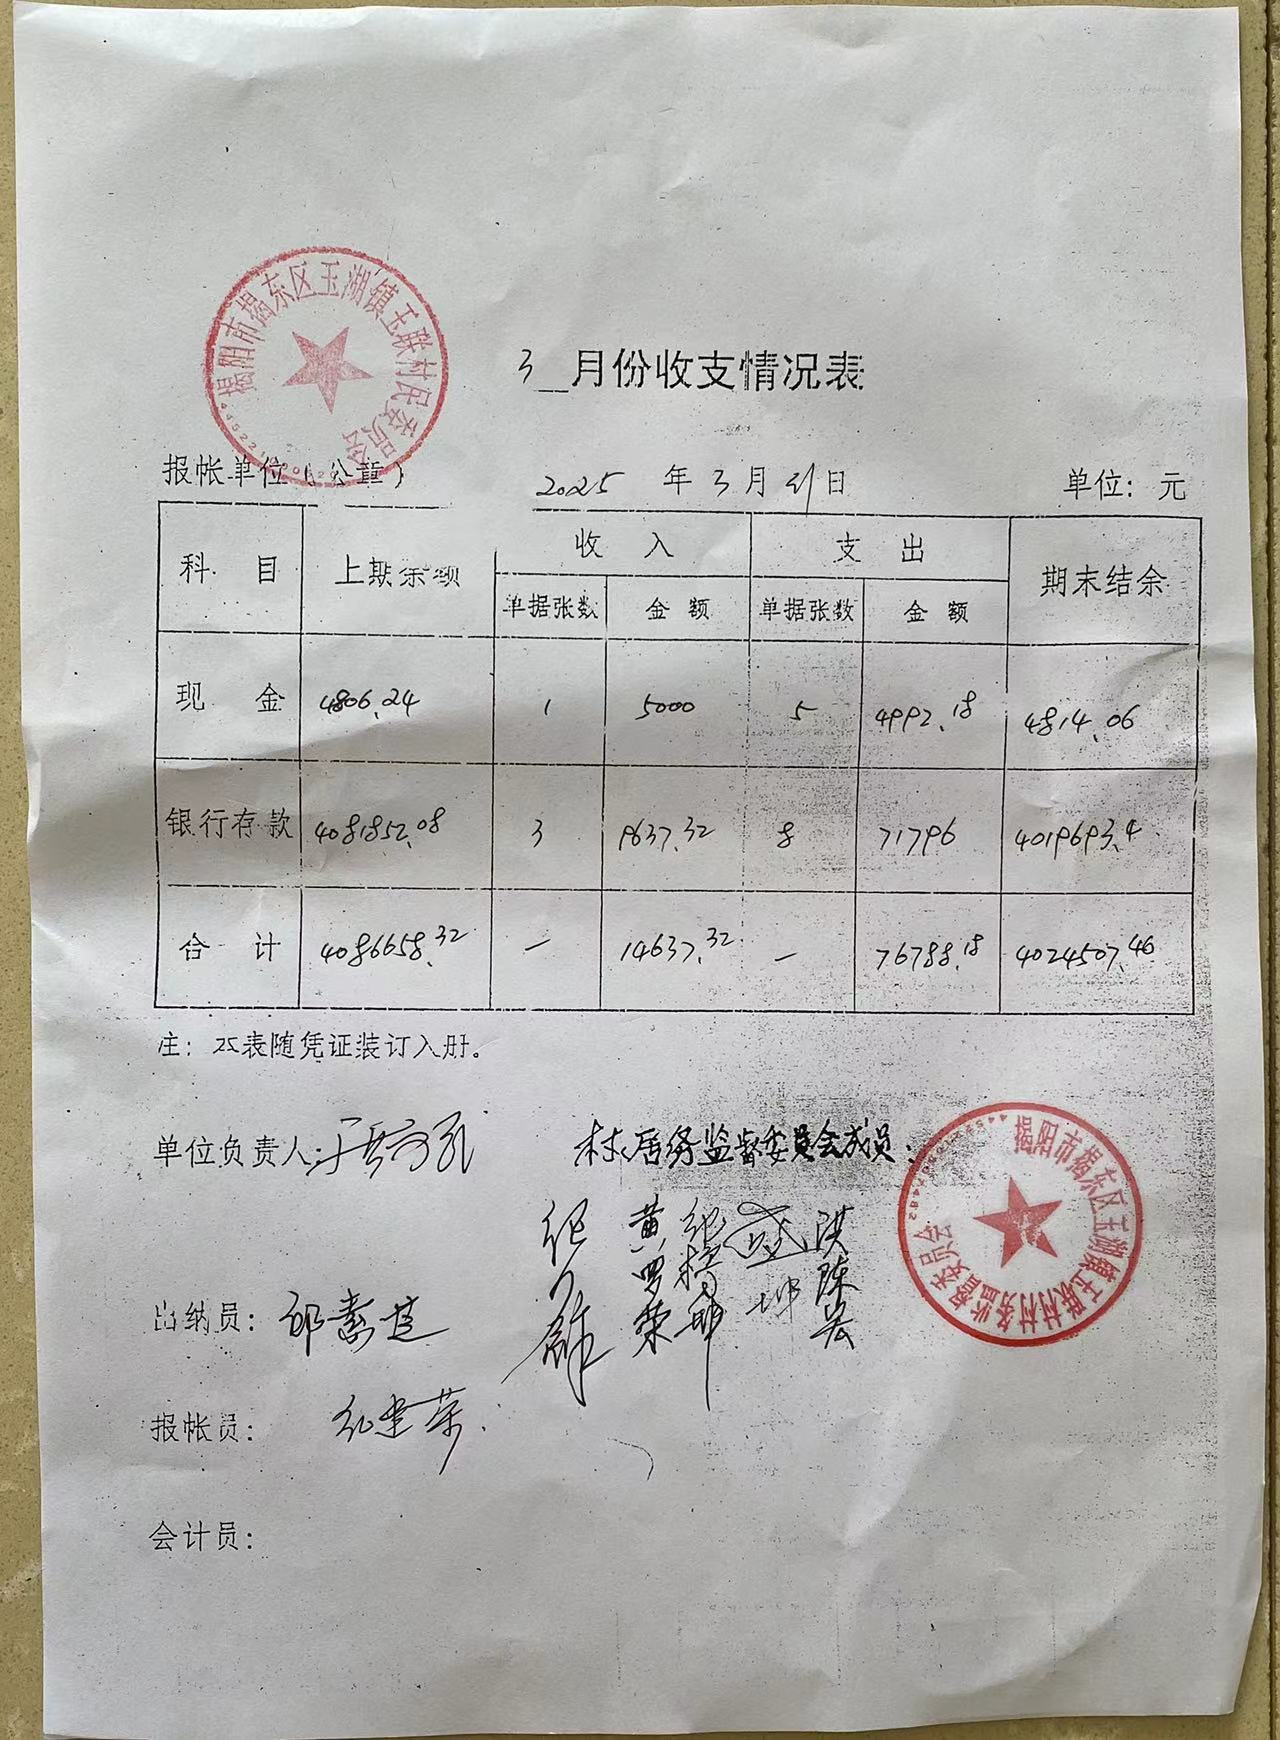 揭阳市揭东区玉湖镇玉联村民委员会
3月份收支情况表
报帐单位(公章) 2025年3月31日 单位：元
科目 上期余额 收入 支出 期末结余
单据张数 金额 单据张数 金额
现金 4806.24 1 5000 5 4992.18 4814.06
银行存款 4081852.08 3 9637.32 8 71796 4019693.4
合计 4086658.32 — 14637.32 — 76788.18 4024507.46
注：本表随凭证装订入册。
单位负责人： 村居务监督委员会成员：
揭阳市揭东区玉湖镇玉联村村务监督委员会
出纳员：
报帐员：
会计员：